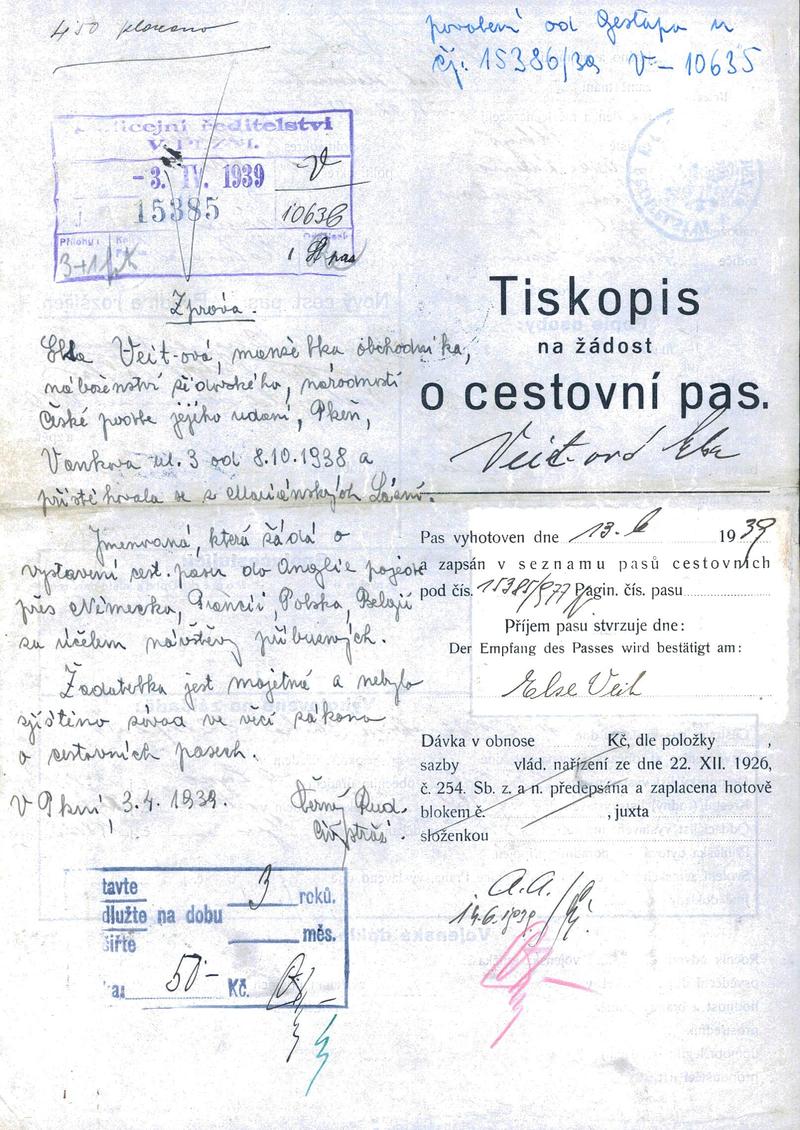 povolení od Gestapa
čj: 15386/39 V-10635
licejní ředitelství
V PLZNI.
-3. IV. 1939
15385
10636
Přílohy:
3+1
Zpráva.
Veit-ová, manželka obchodníka,
náboženství židovského, národnosti
české podle jejího udání, Plzeň,
Vaňkova ul. 3 od 8.10.1938 a
přistěhovala se z Mariánských Lázní.
Jmenovaná, která žádá o
vystavení cest. pasu do Anglie pojede
přes Německo, Francii, Polsko, Belgii
za účelem návštěvy příbuzných.
Žadatelka jest majetná a nebylo
zjištěno závad ve věci zákona
o cestovních pasech.
V Plzni, 3.4. 1939.
Černý Rud.
tavte
dlužte na dobu 3 roků.
šiřte měs.
ka: 50- Kč.
Tiskopis
na žádost
o cestovní pas.
Veit-ová Else
Pas vyhotoven dne 13. 6 1939
a zapsán v seznamu pasů cestovních
pod čís. 15385/977 Pagin. čís. pasu
Příjem pasu stvrzuje dne:
Der Empfang des Passes wird bestätigt am:
Else Veit
Dávka v obnose Kč, dle položky ,
sazby vlád. nařízení ze dne 22. XII. 1926,
č. 254. Sb. z. a n. předepsána a zaplacena hotově
blokem č. , juxta
složenkou
A.A.
14.6.1939